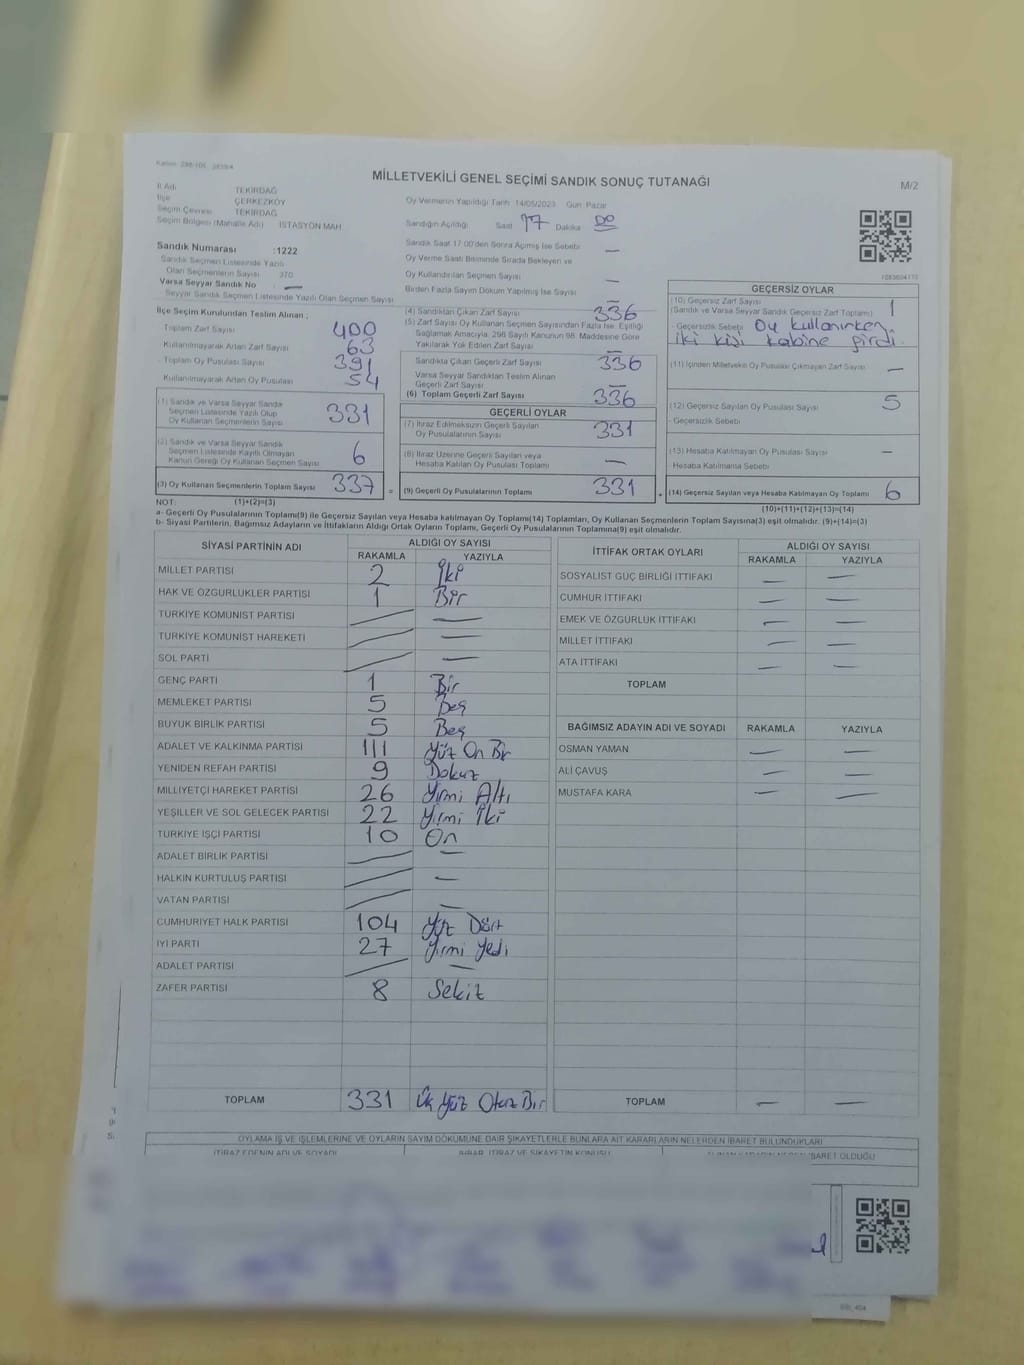 MİLLETVEKİLİ GENEL SEÇİMİ SANDIK SONUÇ TUTANAĞI
M/2
İl Adı TEKİRDAĞ
İlçe ÇERKEZKÖY
Seçim Çevresi TEKİRDAĞ
Seçim Bölgesi (Mahalle Adı) İSTASYON MAH
Oy Vermenin Yapıldığı Tarih 14/05/2023 Gün Pazar
Sandığın Açıldığı Saat 17 Dakika 00
Sandık Numarası :1222
Sandık Seçmen Listesinde Yazılı
Olan Seçmenlerin Sayısı 370
Varsa Seyyar Sandık No —
Seyyar Sandık Seçmen Listesinde Yazılı Olan Seçmen Sayısı
Sandık Saat 17:00'den Sonra Açılmış İse Sebebi —
Oy Verme Saati Bitiminde Sırada Bekleyen ve
Oy Kullandırılan Seçmen Sayısı —
Birden Fazla Sayım Döküm Yapılmış İse Sayısı —
İlçe Seçim Kurulundan Teslim Alınan ;
Toplam Zarf Sayısı 400
Kullanılmayarak Artan Zarf Sayısı 63
Toplam Oy Pusulası Sayısı 391
Kullanılmayarak Artan Oy Pusulası 54
(1) Sandık ve Varsa Seyyar Sandık
Seçmen Listesinde Yazılı Olup
Oy Kullanan Seçmenlerin Sayısı 331
(2) Sandık ve Varsa Seyyar Sandık
Seçmen Listesinde Kayıtlı Olmayan
Kanun Gereği Oy Kullanan Seçmen Sayısı 6
(3) Oy Kullanan Seçmenlerin Toplam Sayısı 337
(4) Sandıktan Çıkan Zarf Sayısı 336
(5) Zarf Sayısı Oy Kullanan Seçmen Sayısından Fazla İse, Eşitliği
Sağlamak Amacıyla, 298 Sayılı Kanunun 98. Maddesine Göre
Yakılarak Yok Edilen Zarf Sayısı —
Sandıkta Çıkan Geçerli Zarf Sayısı 336
Varsa Seyyar Sandıktan Teslim Alınan
Geçerli Zarf Sayısı —
(6) Toplam Geçerli Zarf Sayısı 336
GEÇERLİ OYLAR
(7) İtiraz Edilmeksizin Geçerli Sayılan
Oy Pusulalarının Sayısı 331
(8) İtiraz Üzerine Geçerli Sayılan veya
Hesaba Katılan Oy Pusulası Toplamı —
= (9) Geçerli Oy Pusulalarının Toplamı 331
GEÇERSİZ OYLAR
(10) Geçersiz Zarf Sayısı 1
(Sandık ve Varsa Seyyar Sandık Geçersiz Zarf Toplamı)
- Geçersizlik Sebebi Oy kullanırken
iki kişi kabine girdi.
(11) İçinden Milletvekili Oy Pusulası Çıkmayan Zarf Sayısı —
(12) Geçersiz Sayılan Oy Pusulası Sayısı 5
- Geçersizlik Sebebi
(13) Hesaba Katılmayan Oy Pusulası Sayısı —
Hesaba Katılmama Sebebi
+ (14) Geçersiz Sayılan veya Hesaba Katılmayan Oy Toplamı 6
NOT: (1)+(2)=(3)
(10)+(11)+(12)+(13)=(14)
a- Geçerli Oy Pusulalarının Toplamı(9) ile Geçersiz Sayılan veya Hesaba katılmayan Oy Toplamı(14) Toplamları, Oy Kullanan Seçmenlerin Toplam Sayısına(3) eşit olmalıdır. (9)+(14)=(3)
b- Siyasi Partilerin, Bağımsız Adayların ve İttifakların Aldığı Ortak Oyların Toplamı, Geçerli Oy Pusulalarının Toplamına(9) eşit olmalıdır.
SİYASİ PARTİNİN ADI ALDIĞI OY SAYISI
RAKAMLA YAZIYLA
MİLLET PARTİSİ 2 İki
HAK VE ÖZGÜRLÜKLER PARTİSİ 1 Bir
TÜRKİYE KOMÜNİST PARTİSİ — —
TÜRKİYE KOMÜNİST HAREKETİ — —
SOL PARTİ — —
GENÇ PARTİ 1 Bir
MEMLEKET PARTİSİ 5 Beş
BÜYÜK BİRLİK PARTİSİ 5 Beş
ADALET VE KALKINMA PARTİSİ 111 Yüz On Bir
YENİDEN REFAH PARTİSİ 9 Dokuz
MİLLİYETÇİ HAREKET PARTİSİ 26 Yirmi Altı
YEŞİLLER VE SOL GELECEK PARTİSİ 22 Yirmi İki
TÜRKİYE İŞÇİ PARTİSİ 10 On
ADALET BİRLİK PARTİSİ — —
HALKIN KURTULUŞ PARTİSİ — —
VATAN PARTİSİ — —
CUMHURİYET HALK PARTİSİ 104 Yüz Dört
İYİ PARTİ 27 Yirmi Yedi
ADALET PARTİSİ — —
ZAFER PARTİSİ 8 Sekiz
TOPLAM 331 Üç Yüz Otuz Bir
İTTİFAK ORTAK OYLARI ALDIĞI OY SAYISI
RAKAMLA YAZIYLA
SOSYALİST GÜÇ BİRLİĞİ İTTİFAKI — —
CUMHUR İTTİFAKI — —
EMEK VE ÖZGÜRLÜK İTTİFAKI — —
MİLLET İTTİFAKI — —
ATA İTTİFAKI — —
TOPLAM
BAĞIMSIZ ADAYIN ADI VE SOYADI RAKAMLA YAZIYLA
OSMAN YAMAN — —
ALİ ÇAVUŞ — —
MUSTAFA KARA — —
TOPLAM — —
OYLAMA İŞ VE İŞLEMLERİNE VE OYLARIN SAYIM DÖKÜMÜNE DAİR ŞİKAYETLERLE BUNLARA AİT KARARLARIN NELERDEN İBARET BULUNDUKLARI
İTİRAZ EDENİN ADI VE SOYADI İHBAR, İTİRAZ VE ŞİKAYETİN KONUSU